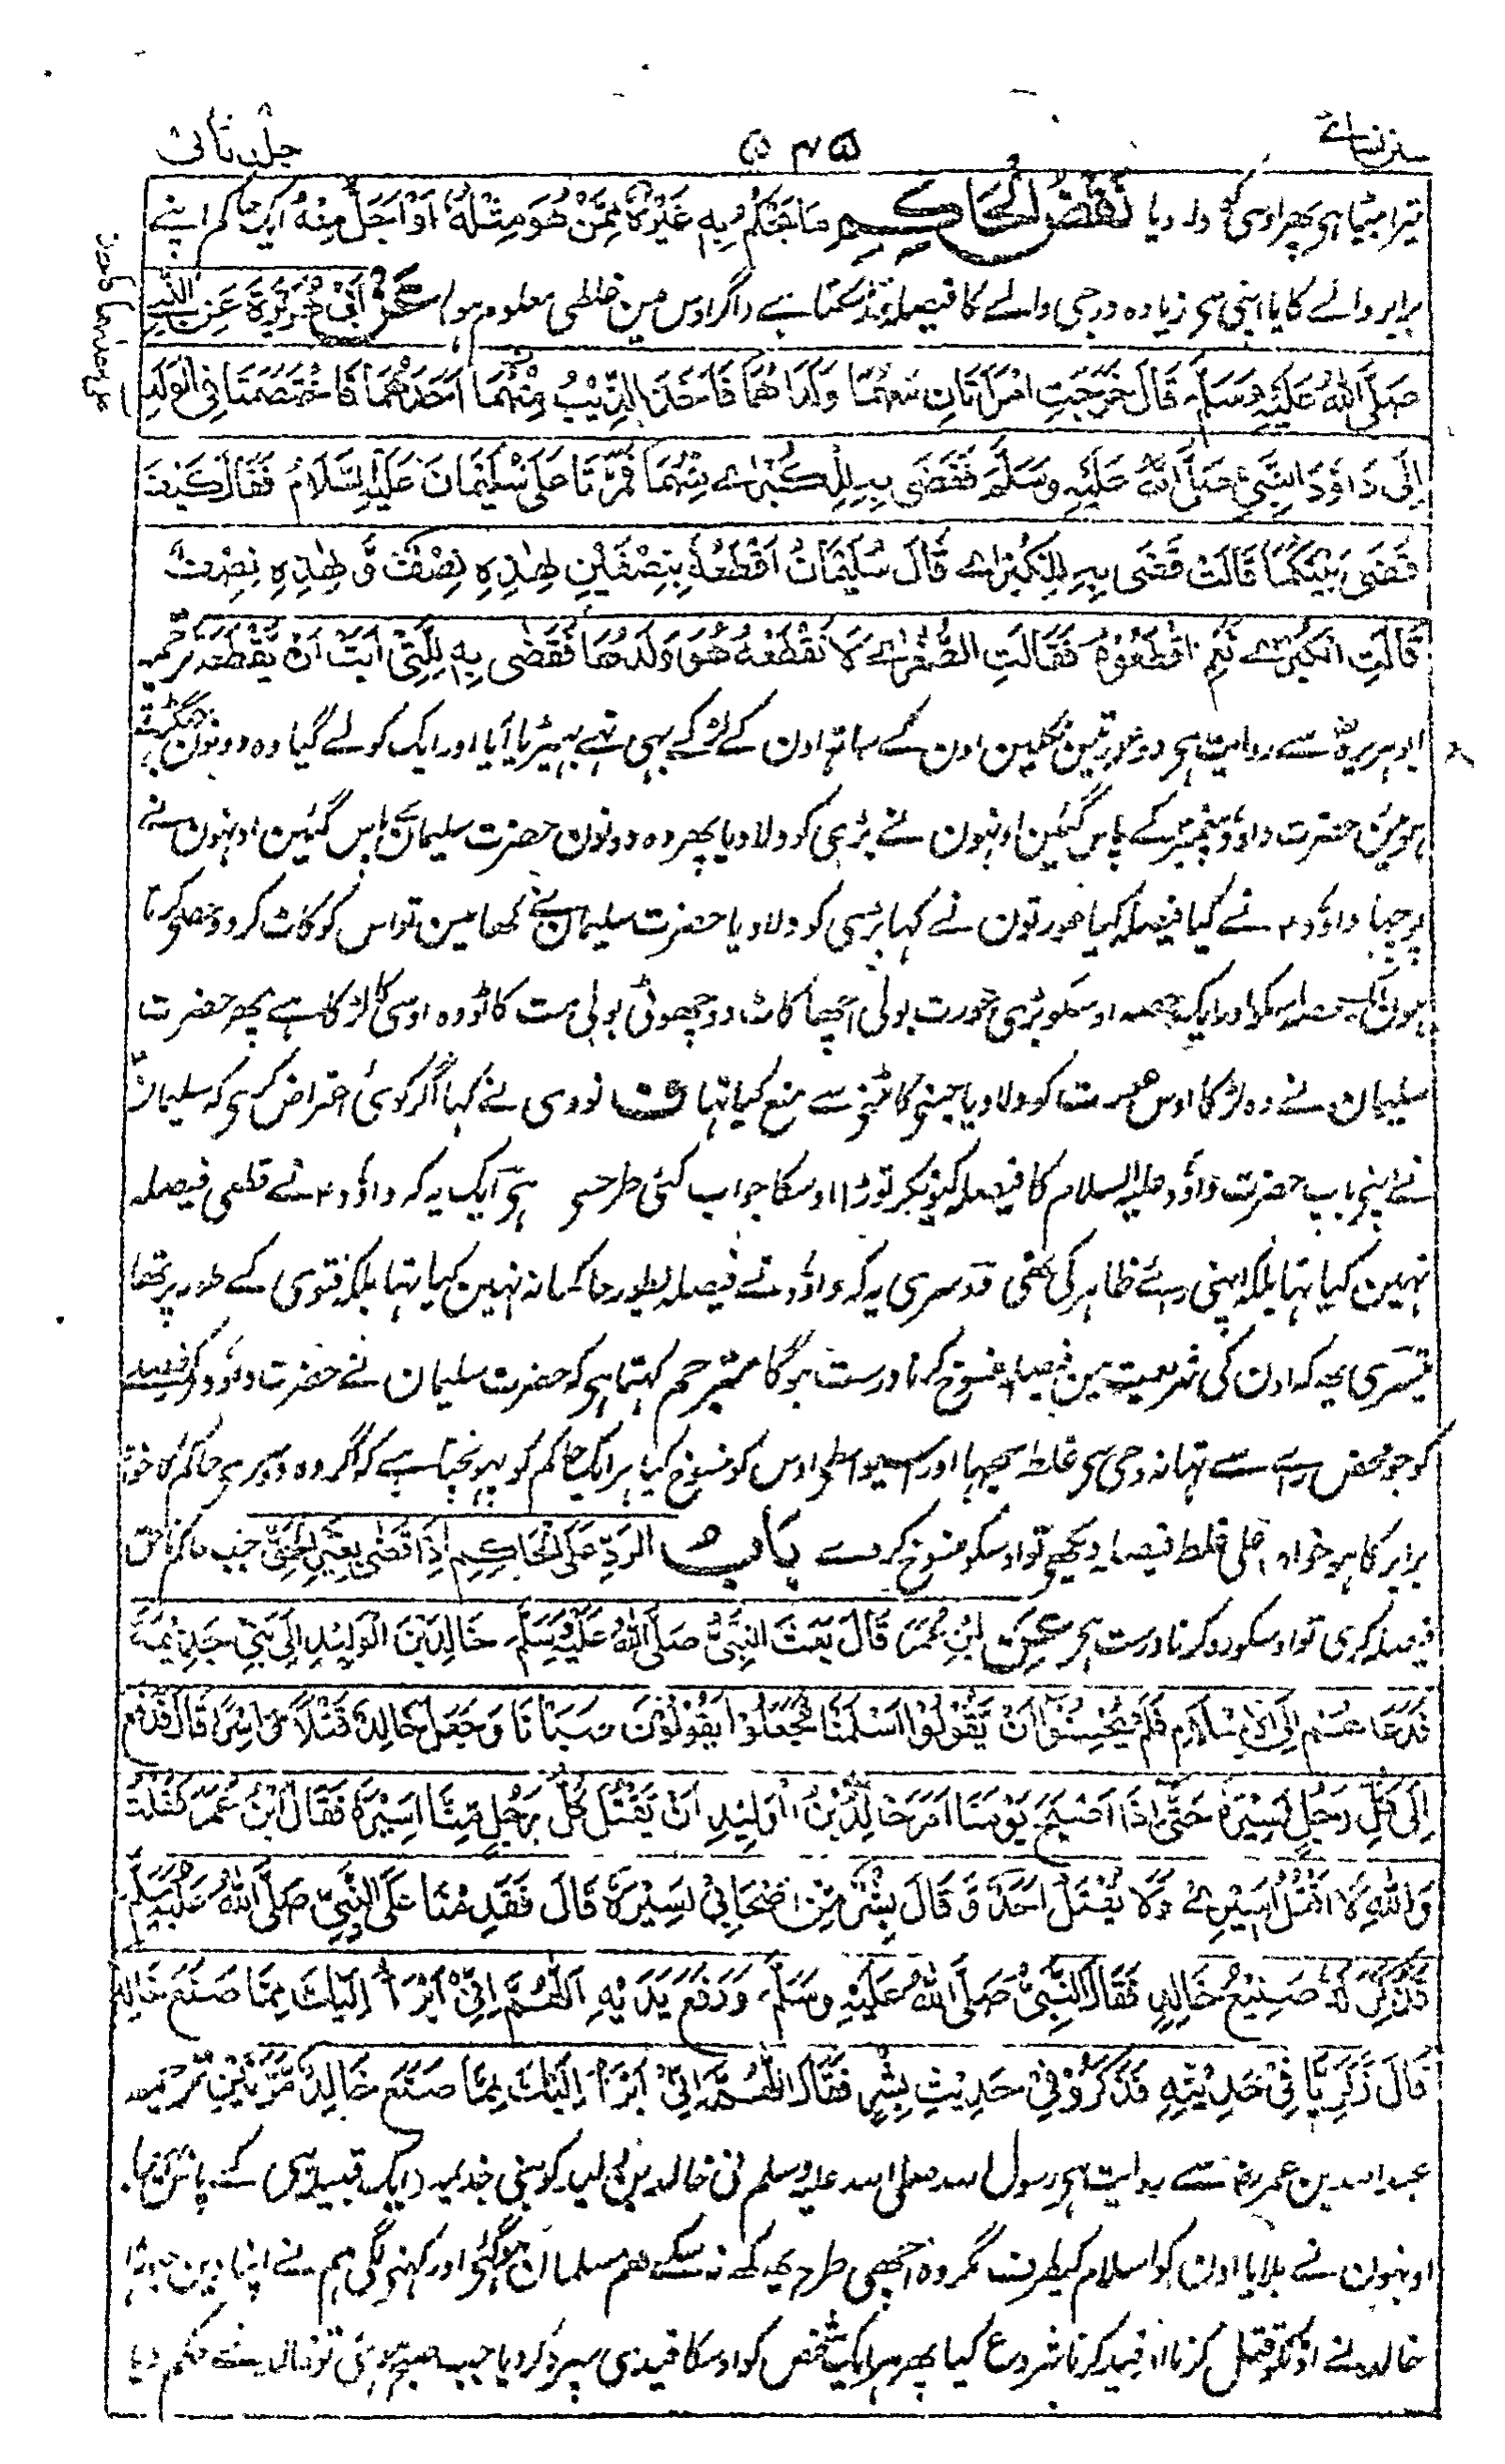 سنن نسائے ۵۴۵ جلد ثانی
تیرا بیٹا ہی پھر اوسی کو دلا دیا نَقْضُ الْحَاكِمِ مَا يَحْكُمُ بِهِ غَيْرُهُ مِمَّنْ هُوَ مِثْلُهُ أَوْ أَجَلُّ مِنْهُ ایک حاکم اپنے
برابر والے کا یا اپنی سی زیادہ درجی والے کا فیصلہ توڑ سکتا ہے اگر اوس مین غلطی معلوم ہو عَنْ أَبِي هُرَيْرَةَ عَنِ النَّبِيِّ
صَلَّى اللهُ عَلَيْهِ وَسَلَّمَ قَالَ خَرَجَتِ امْرَأَتَانِ مَعَهُمَا وَلَدَاهُمَا فَأَخَذَ الذِّئْبُ مِنْهُمَا أَحَدَهُمَا فَاخْتَصَمَتَا فِي الْوَلَدِ
إِلَى دَاوُدَ النَّبِيِّ صَلَّى اللهُ عَلَيْهِ وَسَلَّمَ فَقَضَى بِهِ لِلْكُبْرٰے مِنْهُمَا فَمَرَّتَا عَلَى سُلَيْمَانَ عَلَيْهِ السَّلَامُ فَقَالَ كَيْفَ
قَضَى بَيْنَكُمَا قَالَتْ قَضَى بِهِ لِلْكُبْرٰے قَالَ سُلَيْمَانُ أَقْطَعُهُ بِنِصْفَيْنِ لِهٰذِهِ نِصْفٌ وَّ لِهٰذِهِ نِصْفٌ
قَالَتِ الْكُبْرٰے نَعَمْ اقْطَعُوهُ فَقَالَتِ الصُّغْرٰے لَا تَقْطَعْهُ هُوَ وَلَدُهَا فَقَضٰى بِهِ لِلَّتِيْ أَبَتْ أَنْ يَّقْطَعَهُ ترجمہ
ابوہریرہؓ سے روایت ہی دو عورتین نکلین اون کے ساتہ اون کے لڑکے بہی تہے بہیڑیا آیا اور ایک کو لے گیا وہ دونون جھگڑتے
ہوئین حضرت داؤد پیغمبر کے پاس گئین اونہون نے بڑہی کو دلا دیا پھر وہ دونون حضرت سلیمان کے پاس گئین اونہون نے
پوچہا داؤدؑ نے کیا فیصلہ کیا عورتون نے کہا بڑی کو دلا دیا حضرت سلیمان نے کہا مین تو اس کو کاٹ کر دو حصی کرتا
ہون ایک حصہ اسکو اور ایک حصہ اوسکو بڑی عورت بولی اچھا کاٹ دو چھوٹی بولی مت کاٹو وہ اوسی کا لڑکا ہے پھر حضرت
سلیمان نے وہ لڑکا اوس عورت کو دلا دیا جسنی کاٹنی سے منع کیا تہا ف نووی نے کہا اگر کوئی اعتراض کری کہ سلیمانؑ
نے اپنی باپ حضرت داؤد علیہ السلام کا فیصلہ کیونکر توڑا اوسکا جواب کئی طرحسی ہی ایک یہ کہ داؤدؑ نے قطعی فیصلہ
نہین کیا تہا بلکہ اپنی راے ظاہر کی تھی دوسری یہ کہ داؤد نے فیصلہ بطور حاکمانہ نہین کیا تہا بلکہ فتوی کے طور پر تھا
تیسری یہ کہ اون کی شریعت مین فیصلہ منسوخ کرنا درست ہوگا مترجم کہتا ہی کہ حضرت سلیمان نے حضرت داؤد کے فیصلہ
کو جو محض راے سے تہا نہ وحی سی غلط سمجہا اور اسیواسطی اوس کو منسوخ کیا ہر ایک حاکم کو پہونچتا ہے کہ اگر وہ دوسری حاکم کا خواہ
برابر کا ہو خواہ اعلی غلط فیصلہ دیکھی تو اوسکو منسوخ کر دے بَاب الرَّدِّ عَلَى الْحَاكِمِ إِذَا قَضَى بِغَيْرِ الْحَقِّ جب حاکم ناحق
فیصلہ کری تو اوسکو رد کرنا درست ہی عَنِ ابْنِ عُمَرَ قَالَ بَعَثَ النَّبِيُّ صَلَّى اللهُ عَلَيْهِ وَسَلَّمَ خَالِدَ بْنَ الْوَلِيْدِ إِلَى بَنِيْ جَذِيْمَةَ
فَدَعَاهُمْ إِلَى الْإِسْلَامِ فَلَمْ يُحْسِنُوْا أَنْ يَّقُوْلُوْا أَسْلَمْنَا فَجَعَلُوْا يَقُوْلُوْنَ صَبَأْنَا وَجَعَلَ خَالِدٌ قَتْلًا وَّ اَسْرًا قَالَ فَدَفَعَ
إِلَى كُلِّ رَجُلٍ أَسِيْرَهُ حَتَّى إِذَا أَصْبَحَ يَوْمُنَا أَمَرَ خَالِدُ بْنُ الْوَلِيْدِ أَنْ يَقْتُلَ كُلُّ رَجُلٍ مِّنَّا أَسِيْرَهُ فَقَالَ ابْنُ عُمَرَ فَقُلْتُ
وَاللهِ لَا أَقْتُلُ أَسِيْرِيْ وَلَا يَقْتُلُ أَحَدٌ وَّ قَالَ بِشْرٌ مِّنْ أَصْحَابِيْ أَسِيْرَهُ قَالَ فَقَدِمْنَا عَلَى النَّبِيِّ صَلَّى اللهُ عَلَيْهِ وَسَلَّمَ
فَذُكِرَ لَهُ صَنِيْعُ خَالِدٍ فَقَالَ النَّبِيُّ صَلَّى اللهُ عَلَيْهِ وَسَلَّمَ وَرَفَعَ يَدَيْهِ اَللّٰهُمَّ إِنِّيْ أَبْرَأُ إِلَيْكَ مِمَّا صَنَعَ خَالِدٌ
قَالَ زَكَرِيَّا فِيْ حَدِيْثِهِ فَذُكِرَ وَفِيْ حَدِيْثِ بِشْرٍ فَقَالَ اللّٰهُمَّ إِنِّيْ أَبْرَأُ إِلَيْكَ مِمَّا صَنَعَ خَالِدٌ مَرَّتَيْنِ ترجمہ
عبد اللہ بن عمرؓ سے روایت ہی رسول اللہ صلی اللہ علیہ وسلم نی خالد بن ولید کو بنی جذیمہ (ایک قبیلہ ہی) کے پاس بہیجا
اونہون نے بلایا اون کو اسلام کیطرف مگر وہ اچھی طرح یہ کہہ نہ سکے ہم مسلمان ہوگئی اور کہنی لگی ہم نے اپنا دین چہوڑا
خالد نے اونکو قتل کرنا اور قید کرنا شروع کیا پھر ہر ایک شخص کو اوسکا قیدی سپرد کر دیا جب صبح ہوئی تو خالد نے حکم دیا